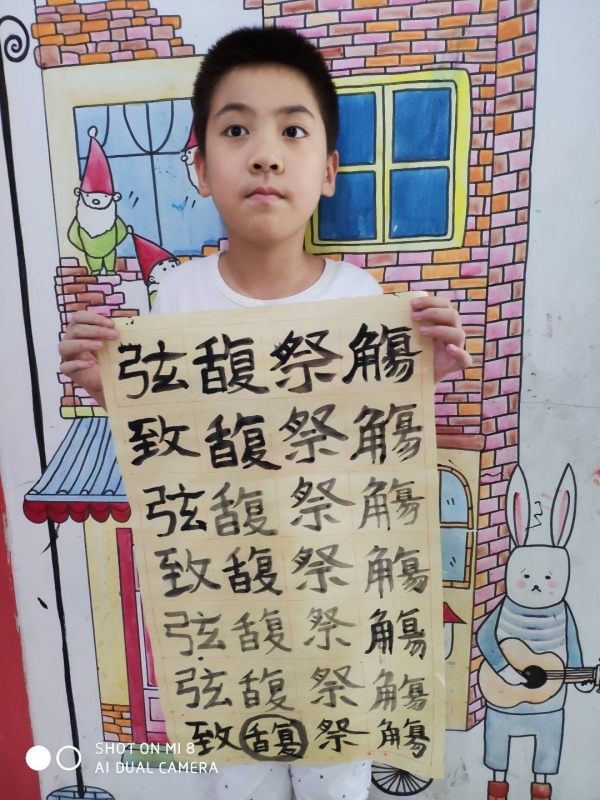 弦馥祭觴
致馥祭觴
弦馥祭觴
致馥祭觴
弦馥祭觴
弦馥祭觴
致馥祭觴
SHOT ON MI 8
AI DUAL CAMERA